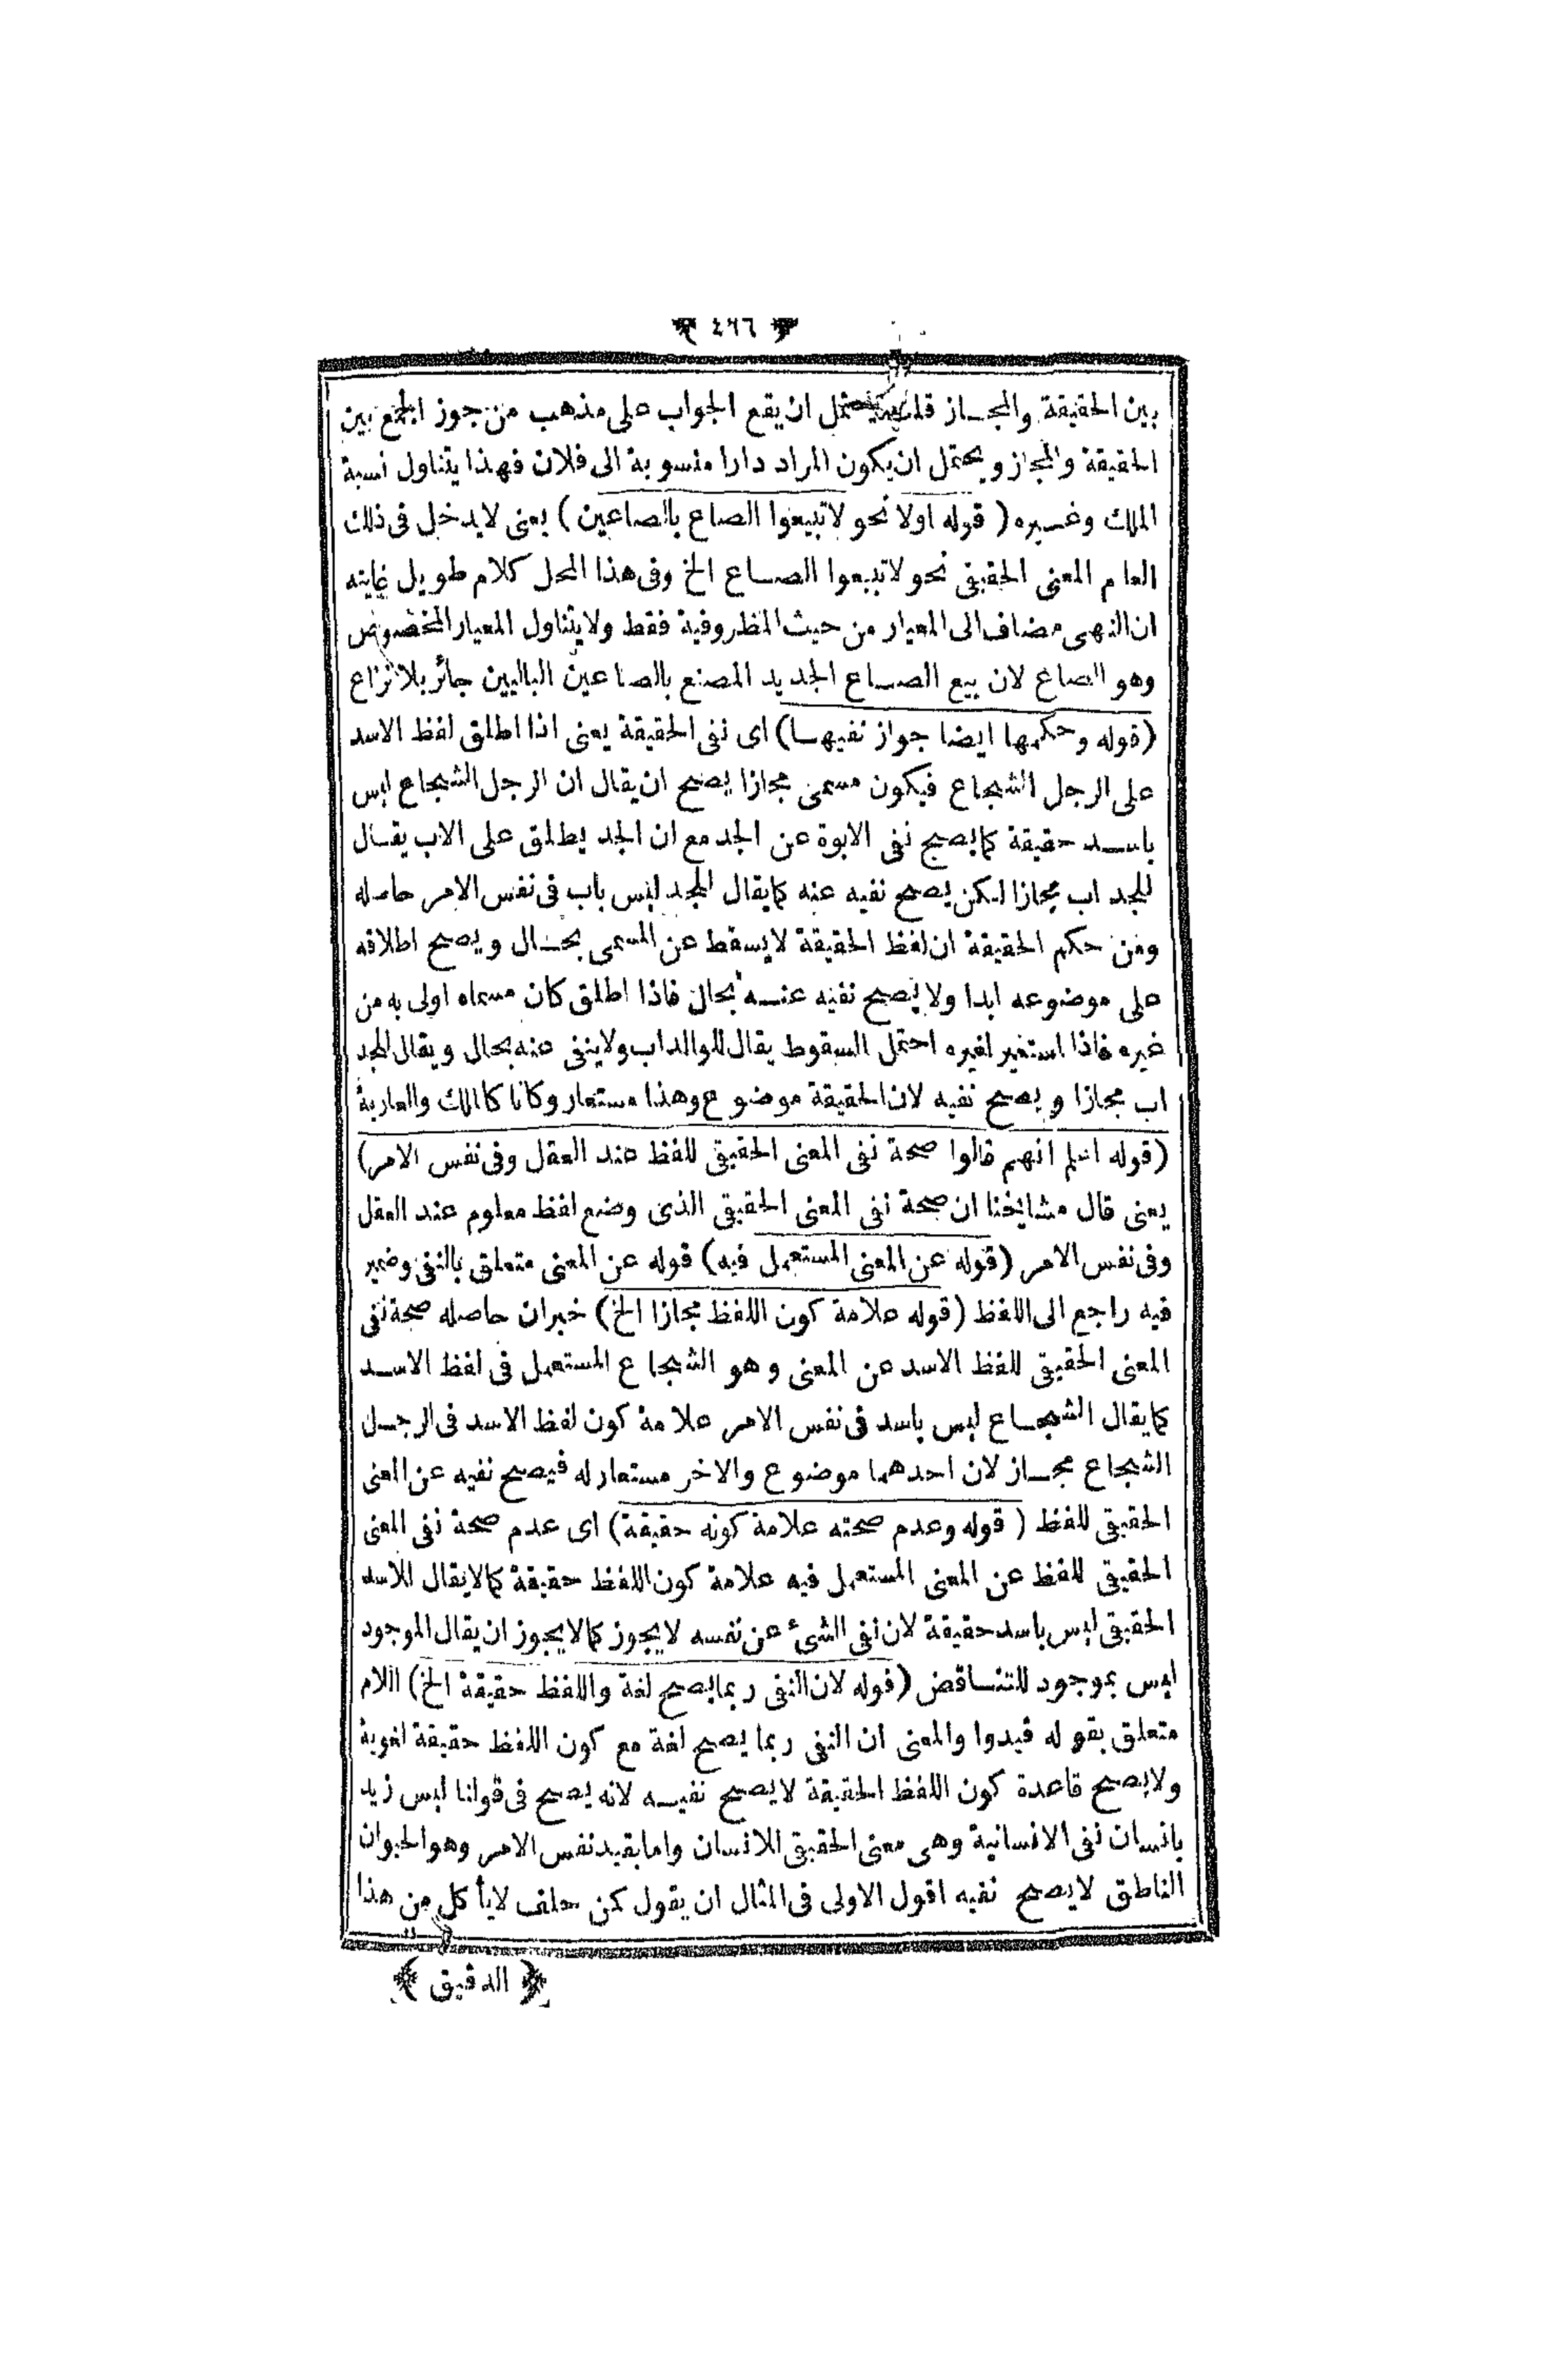 ﴿ ٤٦٦ ﴾
بين الحقيقة والمجاز يحتمل ان يقع الجواب على مذهب من جوز الجمع بين
الحقيقة والمجاز ويحتمل ان يكون المراد دارا منسوبة الى فلان فهذا يتناول نسبة
الملك وغيره ( قوله اولا نحو لاتبيعوا الصاع بالصاعين ) يعنى لايدخل فى ذلك
العام المعنى الحقيقى نحو لاتبيعوا الصاع الخ وفى هذا المحل كلام طويل غايته
ان النهى مضاف الى المعيار من حيث المظروفية فقط ولايتناول المعيار المخصوص
وهو الصاع لان بيع الصاع الجديد المصنع بالصاعين الباليين جائز بلا نزاع
(قوله وحكمها ايضا جواز نفيها) اى نفى الحقيقة يعنى اذا اطلق لفظ الاسد
على الرجل الشجاع فيكون مسمى مجازا يصح ان يقال ان الرجل الشجاع ليس
باسد حقيقة كما يصح نفى الابوة عن الجد مع ان الجد يطلق على الاب يقال
للجد اب مجازا لكن يصح نفيه عنه كما يقال الجد ليس باب فى نفس الامر حاصله
ومن حكم الحقيقة ان لفظ الحقيقة لايسقط عن المسمى بحال ويصح اطلاقه
على موضوعه ابدا ولايصح نفيه عنه بحال فاذا اطلق كان مسماه اولى به من
غيره فاذا استعير لغيره احتمل السقوط يقال للوالد اب ولاينفى عنه بحال ويقال للجد
اب مجازا ويصح نفيه لان الحقيقة موضوع وهذا مستعار وكانا كالملك والعارية
(قوله اعلم انهم قالوا صحة نفى المعنى الحقيقى للفظ عند العقل وفى نفس الامر)
يعنى قال مشايخنا ان صحة نفى المعنى الحقيقى الذى وضع لفظ معلوم عند العقل
وفى نفس الامر (قوله عن المعنى المستعمل فيه) قوله عن المعنى متعلق بالنفى وضمير
فيه راجع الى اللفظ (قوله علامة كون اللفظ مجازا الخ) خبران حاصله صحة نفى
المعنى الحقيقى للفظ الاسد عن المعنى وهو الشجاع المستعمل فى لفظ الاسد
كما يقال الشجاع ليس باسد فى نفس الامر علامة كون لفظ الاسد فى الرجل
الشجاع مجاز لان احدهما موضوع والاخر مستعار له فيصح نفيه عن المعنى
الحقيقى للفظ ( قوله وعدم صحته علامة كونه حقيقة) اى عدم صحة نفى المعنى
الحقيقى للفظ عن المعنى المستعمل فيه علامة كون اللفظ حقيقة كما لايقال للاسد
الحقيقى ليس باسد حقيقة لان نفى الشئ عن نفسه لايجوز كما لايجوز ان يقال الموجود
ليس بموجود للتناقض (قوله لان النفى ربما يصح لغة واللفظ حقيقة الخ) اللام
متعلق بقوله قيدوا والمعنى ان النفى ربما يصح لغة مع كون اللفظ حقيقة لغوية
ولايصح قاعدة كون اللفظ الحقيقة لايصح نفيه لانه يصح فى قولنا ليس زيد
بانسان نفى الانسانية وهى معنى الحقيقى للانسان واما بقيد نفس الامر وهو الحيوان
الناطق لايصح نفيه اقول الاولى فى المثال ان يقول كمن حلف لايأكل من هذا
﴿ الدقيق ﴾